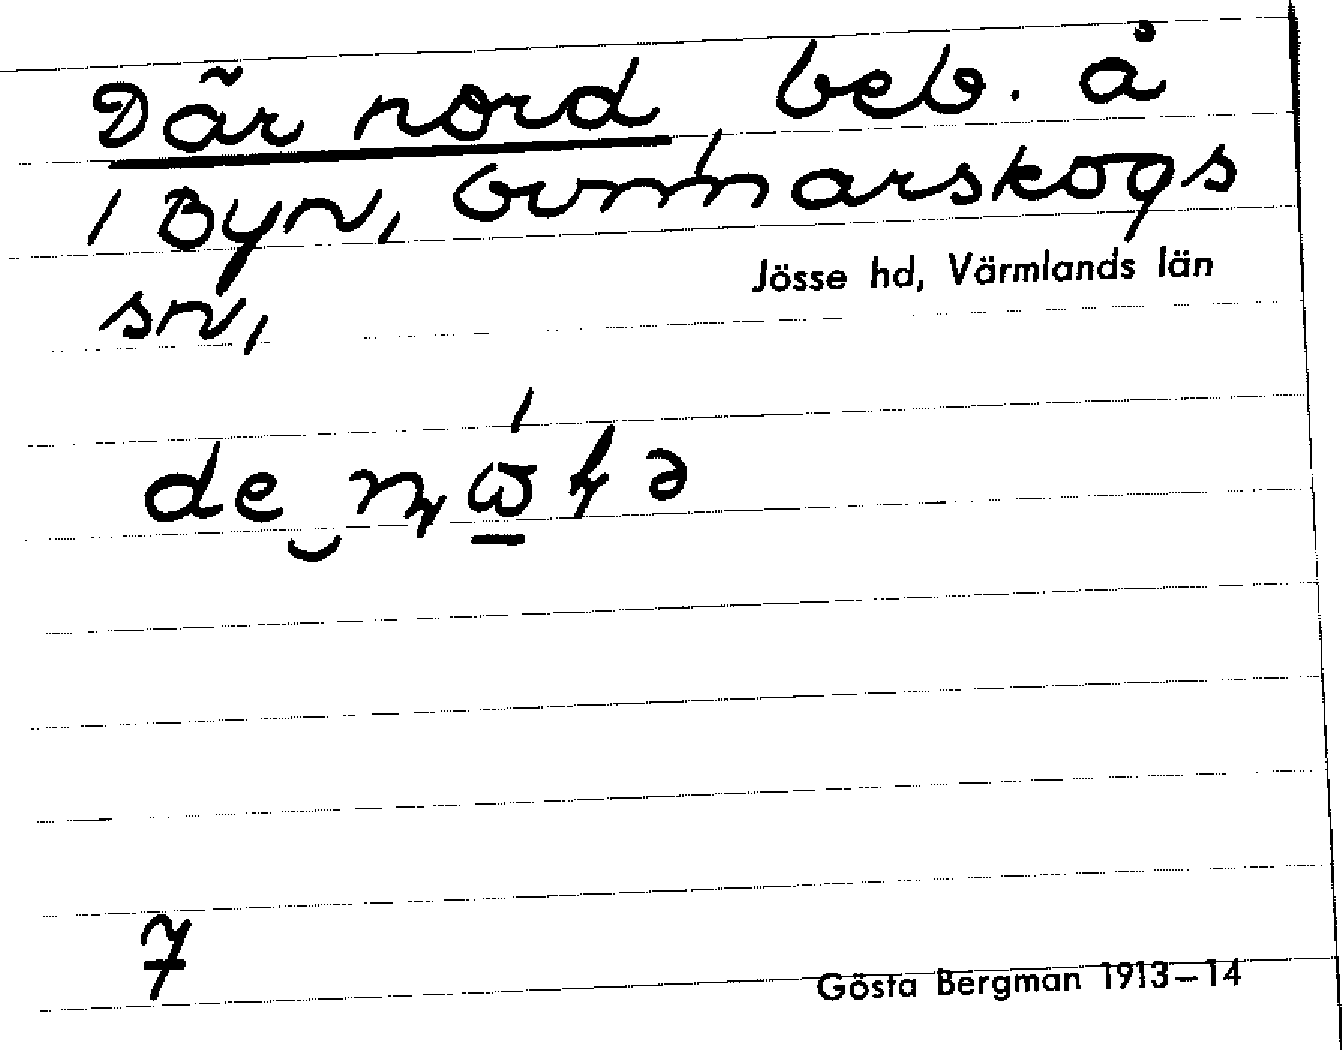 Där nord, beb. å
/ Byn, Gunnarskogs
Jösse hd, Värmlands län
sn,
7
Gösta Bergman 1913–14